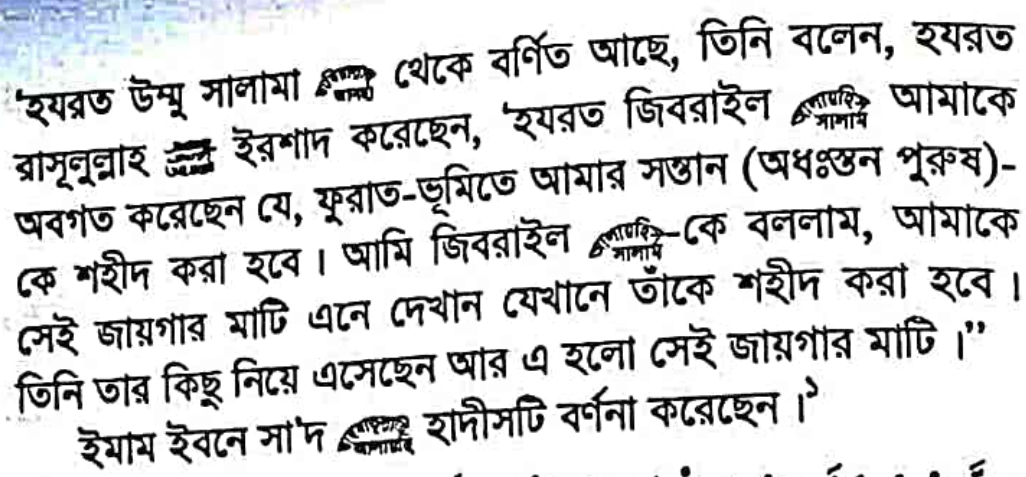 'হযরত উম্মু সালামা থেকে বর্ণিত আছে, তিনি বলেন, হযরত
রাসূলুল্লাহ ইরশাদ করেছেন, 'হযরত জিবরাইল আমাকে
অবগত করেছেন যে, ফুরাত-ভূমিতে আমার সন্তান (অধঃস্তন পুরুষ)-
কে শহীদ করা হবে। আমি জিবরাইল -কে বললাম, আমাকে
সেই জায়গার মাটি এনে দেখান যেখানে তাঁকে শহীদ করা হবে।
তিনি তার কিছু নিয়ে এসেছেন আর এ হলো সেই জায়গার মাটি।”
ইমাম ইবনে সা'দ হাদীসটি বর্ণনা করেছেন।১